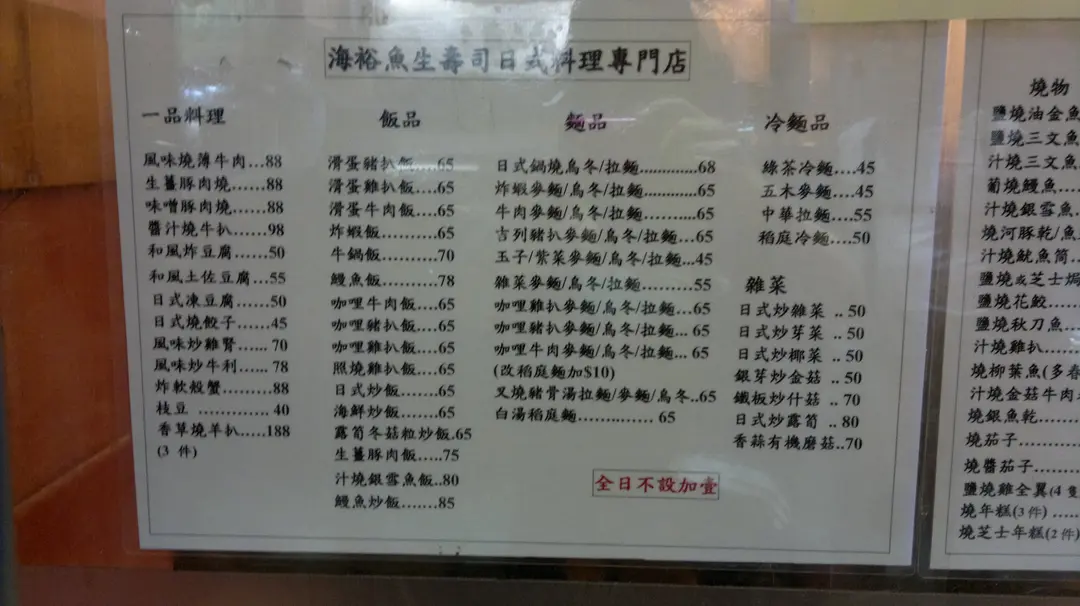 海裕魚生壽司日式料理專門店
一品料理
風味燒薄牛肉...88
生薑豚肉燒......88
味噌豚肉燒......88
醬汁燒牛扒.....98
和風炸豆腐......50
和風土佐豆腐...55
日式凍豆腐......50
日式燒餃子......45
風味炒雞腎...... 70
風味炒牛利...... 78
炸軟殼蟹.........88
枝豆 ............. 40
香草燒羊扒.....188
(3 件)
飯品
滑蛋豬扒飯...65
滑蛋雞扒飯...65
滑蛋牛肉飯....65
炸蝦飯..........65
牛鍋飯..........70
鰻魚飯..........78
咖哩牛肉飯....65
咖哩豬扒飯....65
咖哩雞扒飯....65
照燒雞扒飯....65
日式炒飯.......65
海鮮炒飯.......65
露筍冬菇粒炒飯.65
生薑豚肉飯.....75
汁燒銀雪魚飯..80
鰻魚炒飯.......85
麵品
日式鍋燒烏冬/拉麵..............68
炸蝦麥麵/烏冬/拉麵.............65
牛肉麥麵/烏冬/拉麵............65
吉列豬扒麥麵/烏冬/拉麵...65
玉子/紫菜麥麵/烏冬/拉麵...45
雜菜麥麵/烏冬/拉麵............55
咖哩雞扒麥麵/烏冬/拉麵...65
咖哩豬扒麥麵/烏冬/拉麵... 65
咖哩牛肉麥麵/烏冬/拉麵... 65
(改稻庭麵加$10)
叉燒豬骨湯拉麵/麥麵/烏冬..65
白湯稻庭麵............... 65
全日不設加壹
冷麵品
綠茶冷麵....45
五木麥麵....45
中華拉麵....55
稻庭冷麵....50
雜菜
日式炒雜菜 .. 50
日式炒芽菜 .. 50
日式炒椰菜 .. 50
銀芽炒金菇 .. 50
鐵板炒什菇 .. 70
日式炒露筍 .. 80
香蒜有機磨菇..70
燒物
鹽燒油金魚
鹽燒三文魚
汁燒三文魚
葡燒鰻魚.....
汁燒銀雪魚.
燒河豚乾/魚
汁燒魷魚筒.
鹽燒或芝士焗
鹽燒花鮫......
鹽燒秋刀魚...
汁燒雞扒......
燒柳葉魚(多春
汁燒金菇牛肉
燒銀魚乾......
燒茄子.........
燒醬茄子.......
鹽燒雞全翼(4 隻
燒年糕(3 件) .....
燒芝士年糕(2 件)